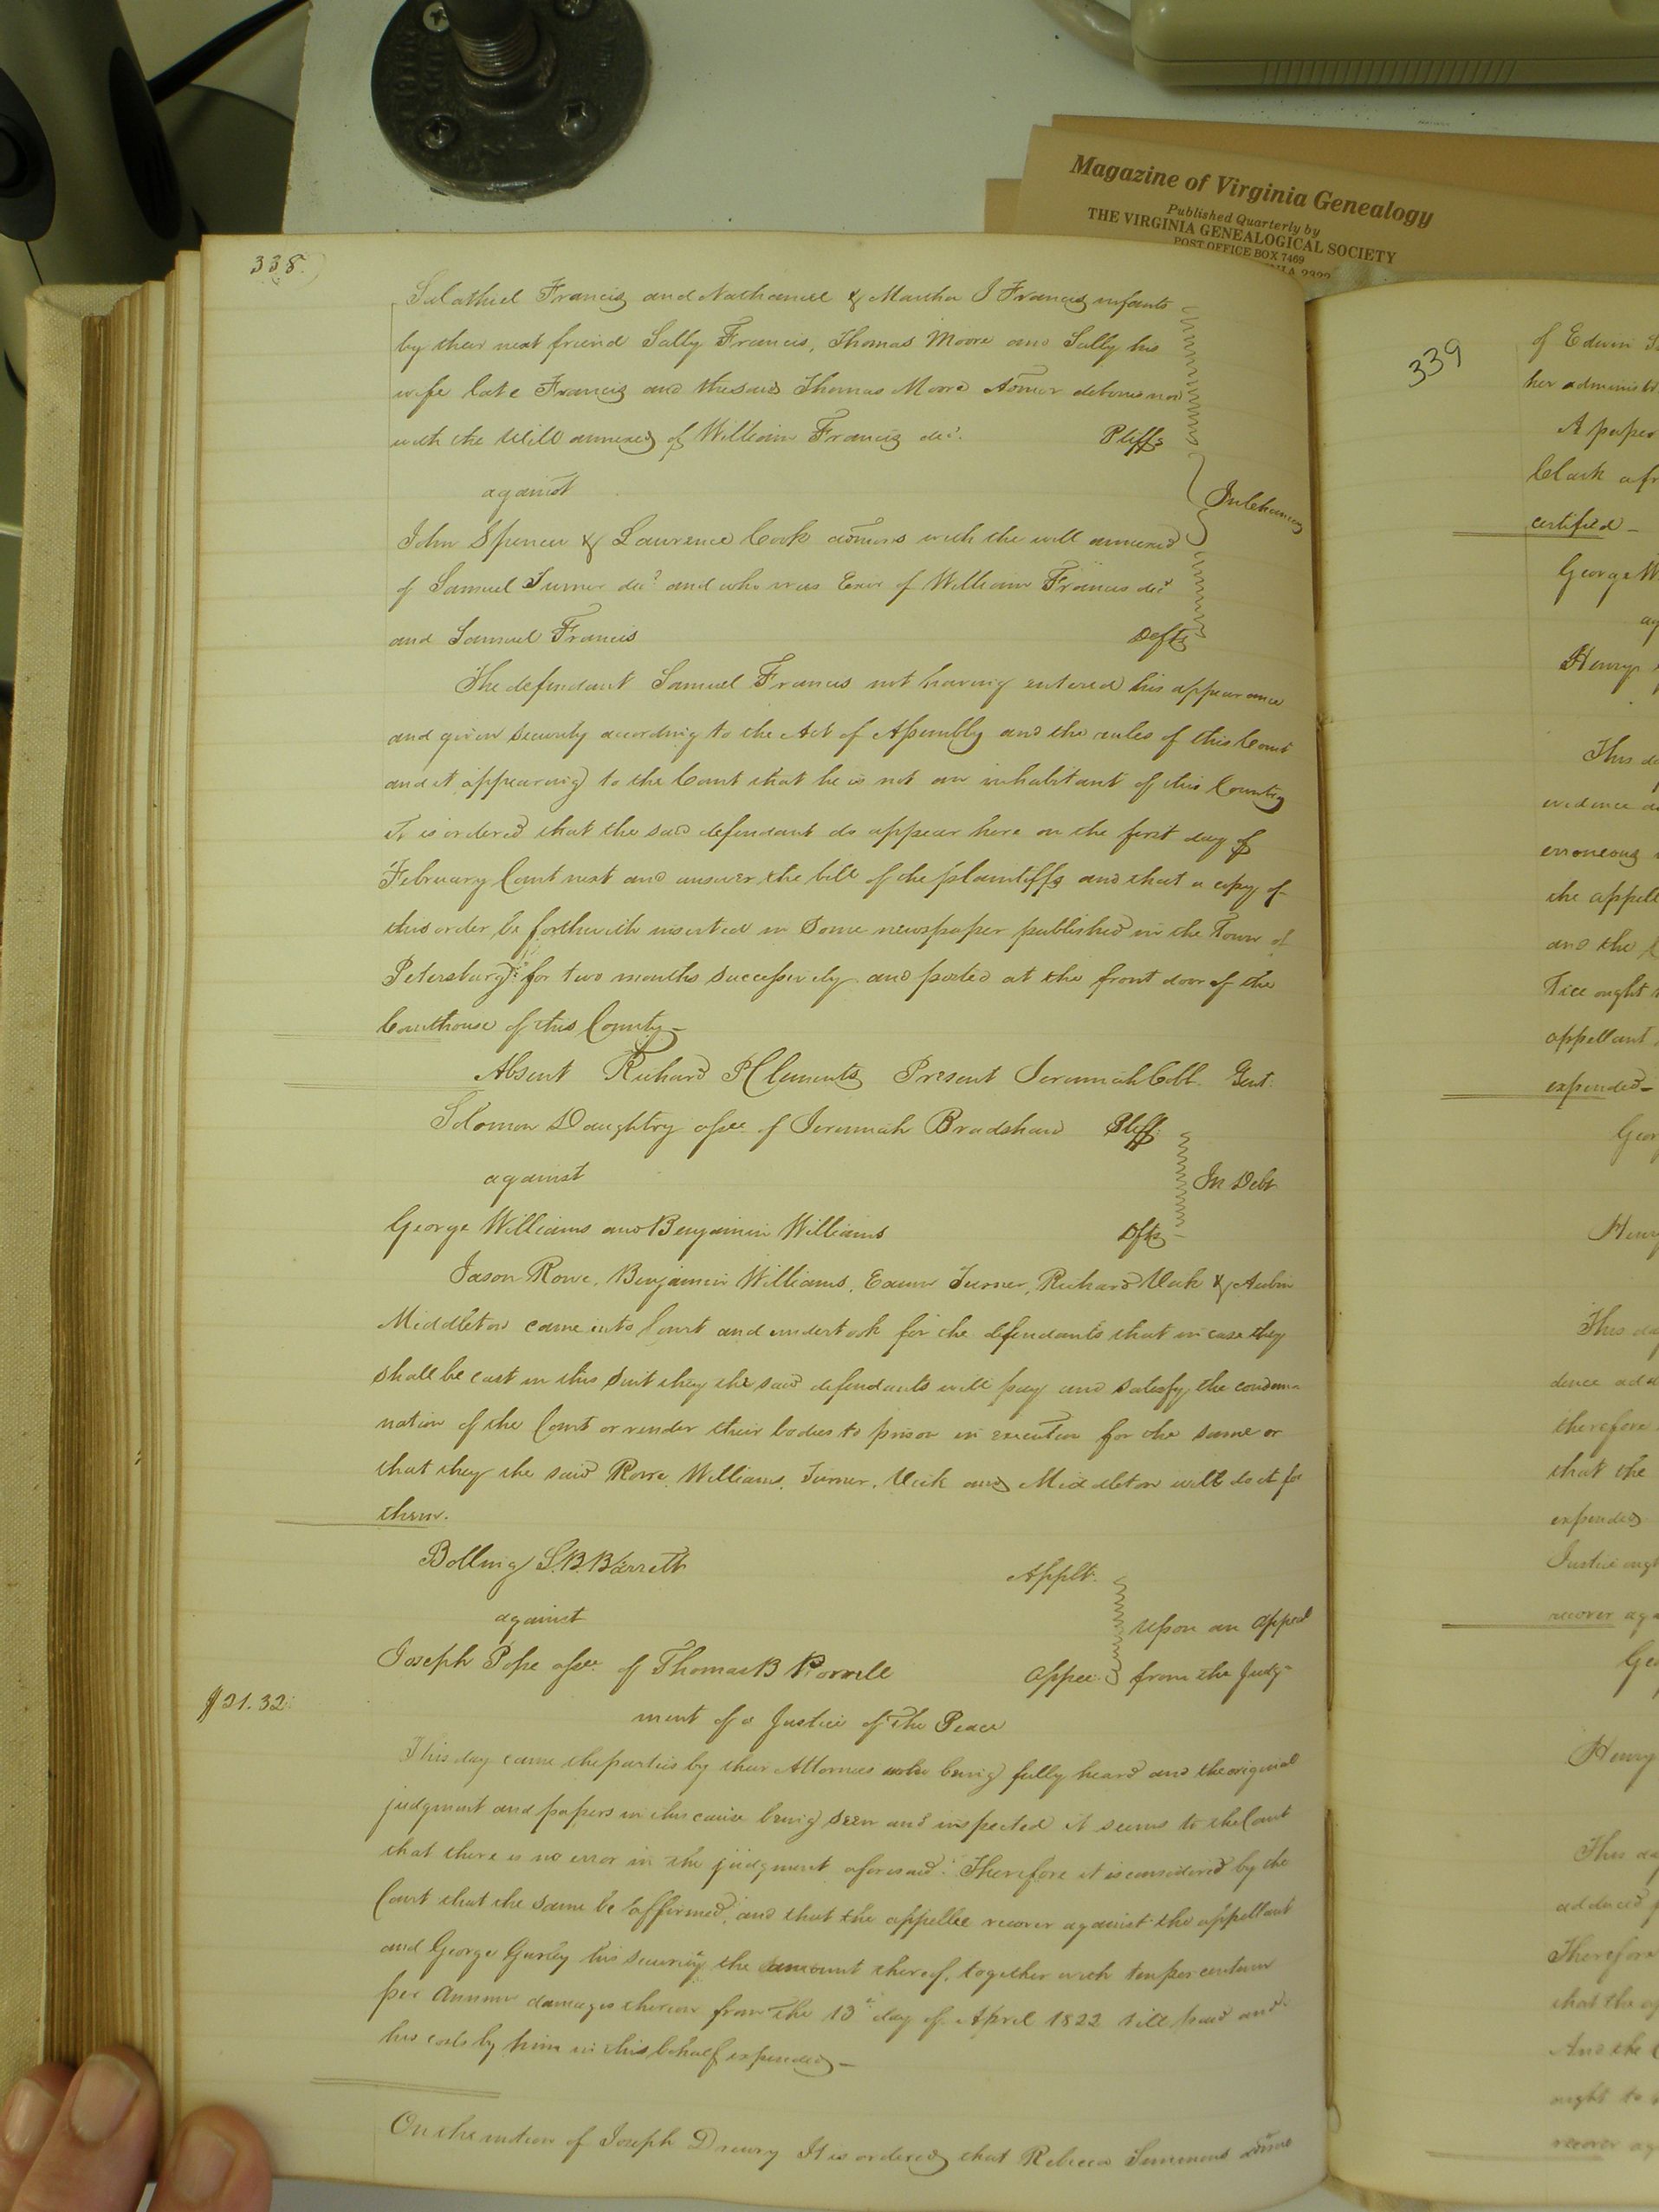 Magazine of Virginia Genealogy
Published Quarterly by
THE VIRGINIA GENEALOGICAL SOCIETY
POST OFFICE BOX 7469
338.
Salathiel Francis and Nathaniel & Martha J Francis infants
by their next friend Sally Francis, Thomas Moore and Sally his
wife late Francis and the said Thomas Moore Admor debonis non
with the Will annexed of William Francis decd. Pltffs
against
In Chancery
John Spencer & Laurence Cook admors with the will annexed
of Samuel Turner decd and who was Exor of William Francis decd
and Samuel Francis Defts
The defendant Samuel Francis not having entered his appearance
and given security according to the Act of Assembly and the rules of this Court
and it appearing to the Court that he is not an inhabitant of this County
It is ordered that the said defendant do appear here on the first day of
February Court next and answer the bill of the plaintiffs and that a copy of
this order be forthwith inserted in some newspaper published in the Town of
Petersburg for two months successively and posted at the front door of the
Courthouse of this County –
Absent Richard P Clements Present Jeremiah Cobb Gent.
Solomon Daughtry assee of Jeremiah Bradshaw Pltff.
against In Debt
George Williams and Benjamin Williams Dfts –
Jason Rowe, Benjamin Williams, Edwin Turner, Richard Vick &
Middleton came into Court and undertook for the defendants that in case they
shall be cast in this suit they the said defendants will pay and satisfy the condem-
nation of the Court or render their bodies to prison in execution for the same or
that they the said Rowe, Williams, Turner, Vick and Middleton will do it for
them.
Bolling S.B. Barrett Applt.
against Upon an appeal
Joseph Pope assee of Thomas B Appee from the Judg-
$21.32
ment of a Justice of the Peace
This day came the parties by their Attornies who being fully heard and the original
judgment and papers in this cause being seen and inspected it seems to the Court
that there is no error in the judgment aforesaid. Therefore it is considered by the
Court that the same be affirmed, and that the appellee recover against the appellant
and George Gurley his security the amount thereof, together with ten per centum
per Annum damages thereon from the 13th day of April 1822 till paid and
his costs by him in this behalf expended –
On the motion of Joseph Drewry It is ordered that Rebecca Simmons
339
of Edwin
her
A paper
Clark
certified –
George W
Henry
This
evidence
erroneous
the
and the
tice ought
appellant
expended –
Geor
Henry
This
dence
therefore
that the
expended
Justice
recover
Geo
Henry
This
adduced
Therefore
that the
And the
ought to
recover